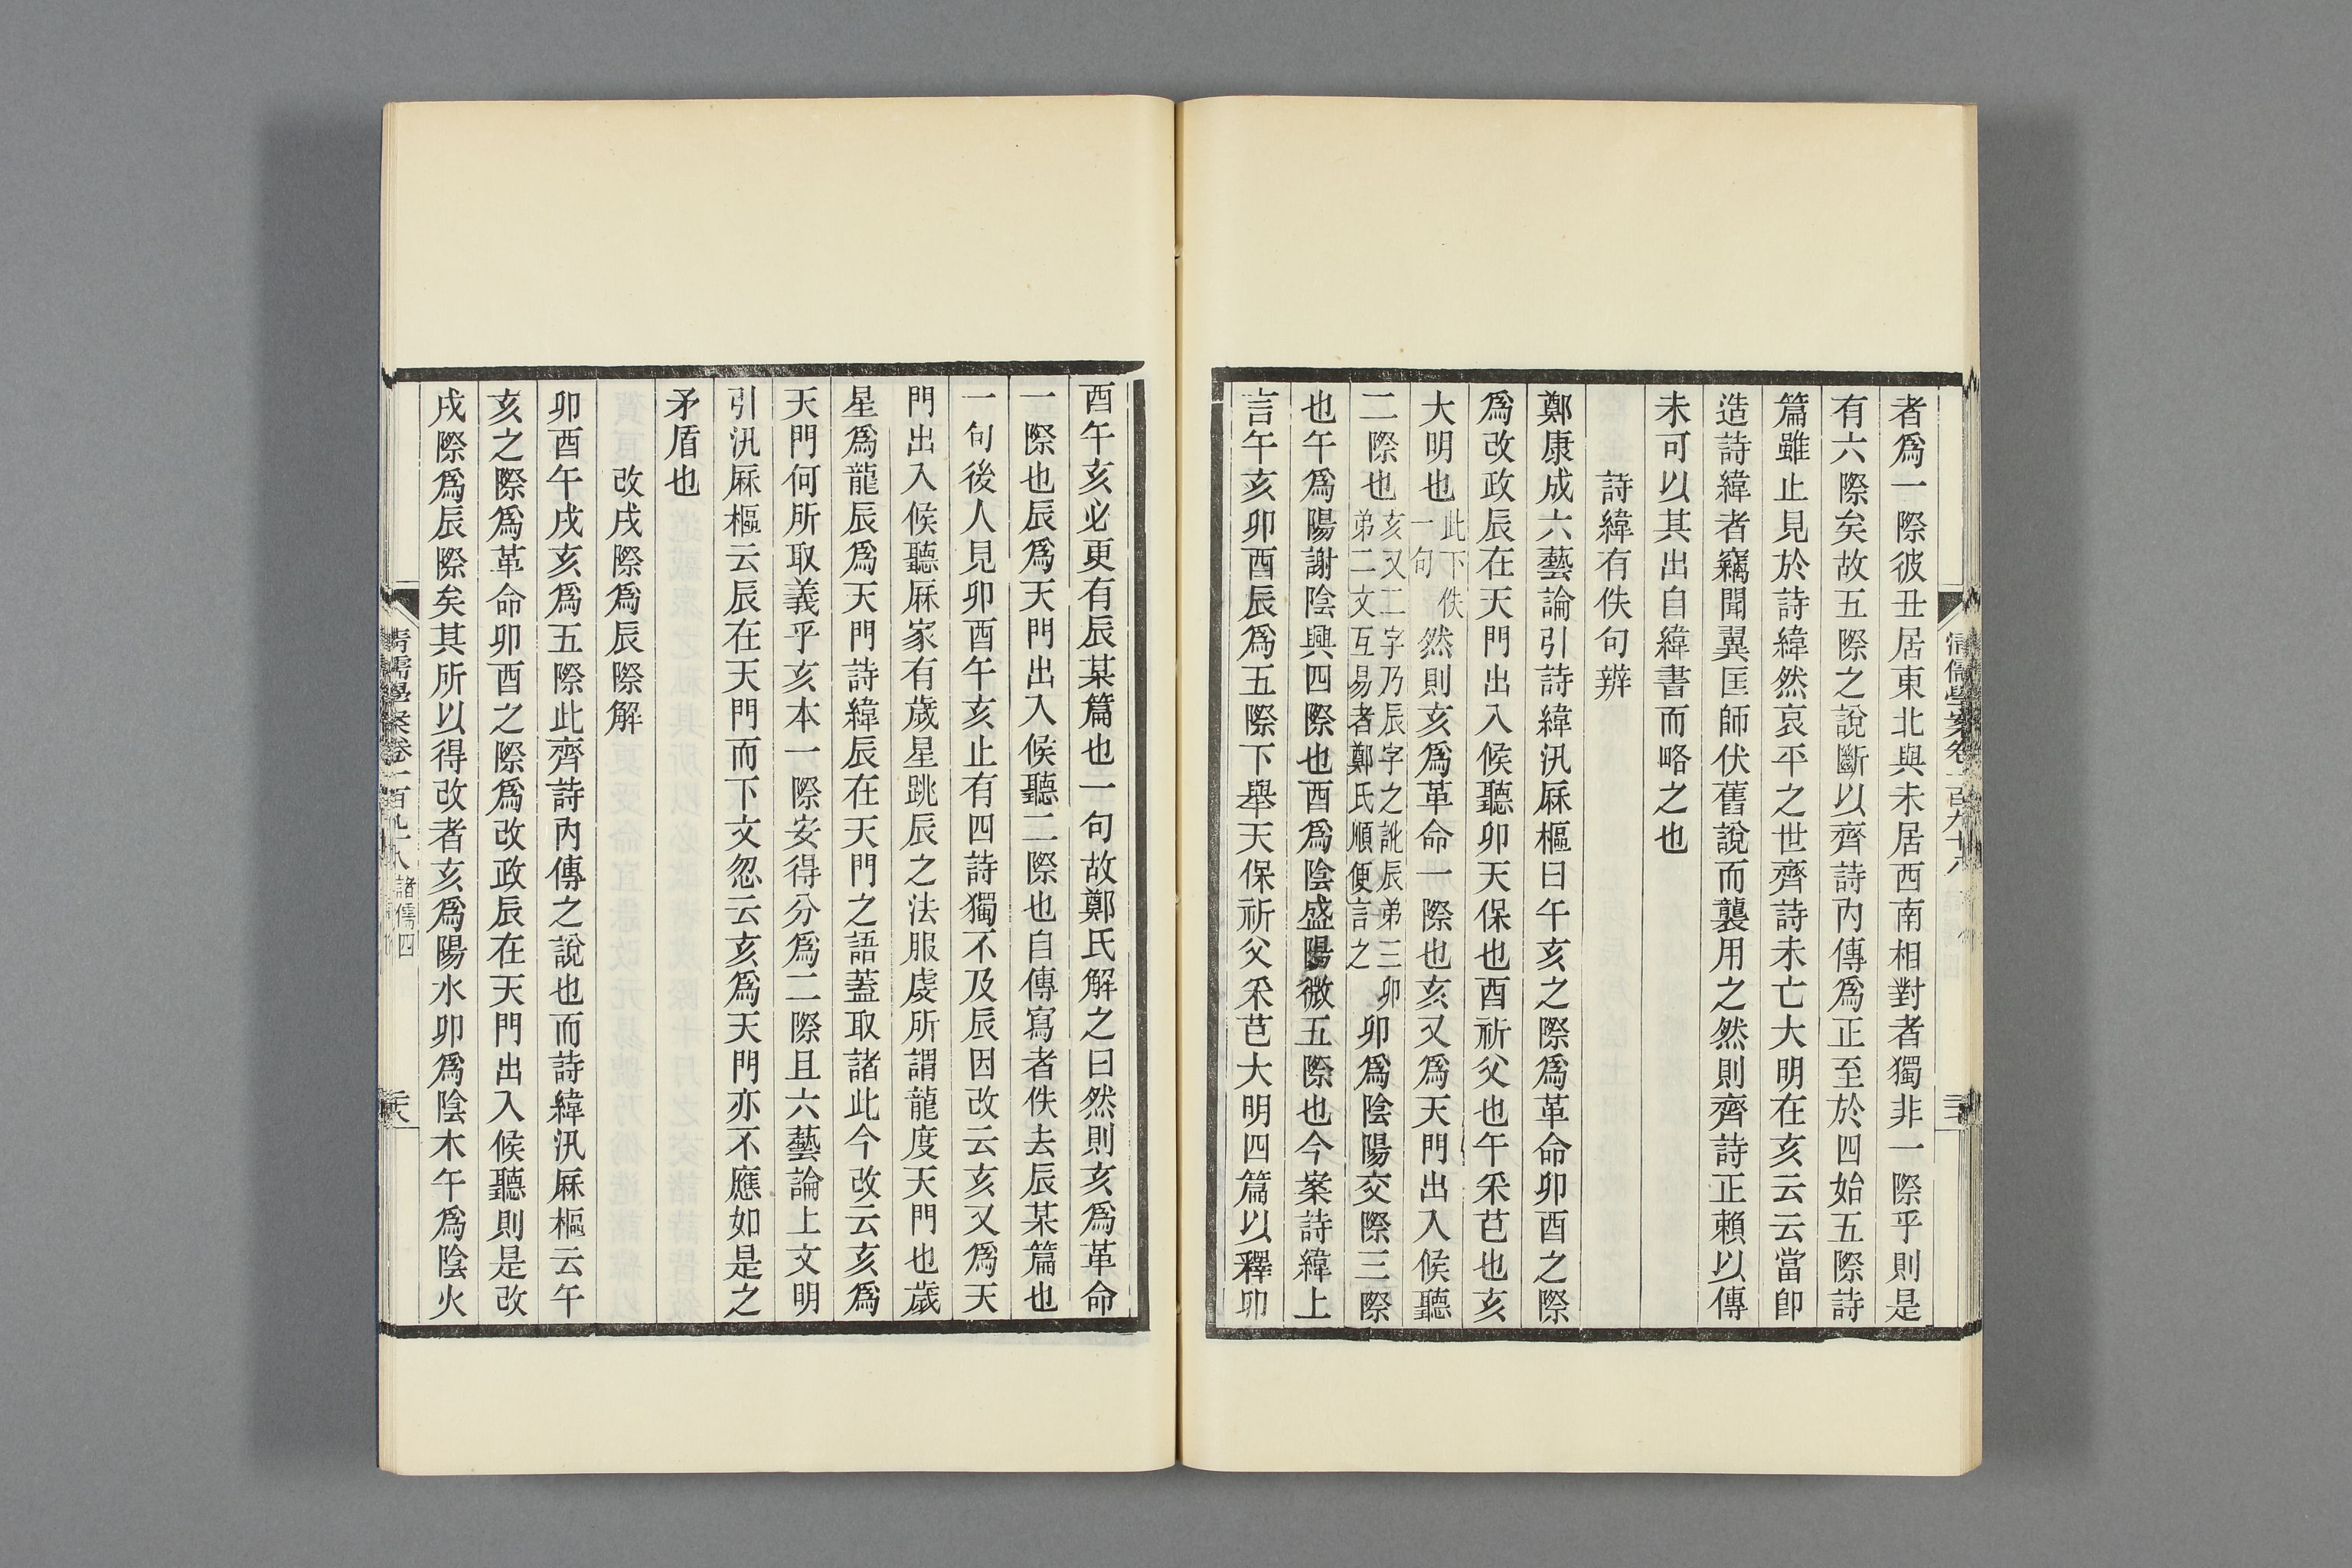 者爲一際彼丑居東北與未居西南相對者獨非一際乎則是
有六際矣故五際之說斷以齊詩內傳爲正至於四始五際詩
篇雖止見於詩緯然哀平之世齊詩未亡大明在亥云云當卽
造詩緯者竊聞翼匡師伏舊說而襲用之然則齊詩正賴以傳
未可以其出自緯書而略之也
詩緯有佚句辨
鄭康成六藝論引詩緯汎厤樞曰午亥之際爲革命卯酉之際
爲改政辰在天門出入候聽卯天保也酉祈父也午采芑也亥
大明也此下佚一句然則亥爲革命一際也亥又爲天門出入候聽
二際也亥又二字乃辰字之訛辰弟三卯弟二文互易者鄭氏順便言之卯爲陰陽交際三際
也午爲陽謝陰興四際也酉爲陰盛陽微五際也今案詩緯上
言午亥卯酉辰爲五際下舉天保祈父采芑大明四篇以釋卯
酉午亥必更有辰某篇也一句故鄭氏解之曰然則亥爲革命
一際也辰爲天門出入候聽二際也自傳寫者佚去辰某篇也
一句後人見卯酉午亥止有四詩獨不及辰因改云亥又爲天
門出入候聽厤家有歲星跳辰之法服虔所謂龍度天門也歲
星爲龍辰爲天門詩緯辰在天門之語蓋取諸此今改云亥爲
天門何所取義乎亥本一際安得分爲二際且六藝論上文明
引汎厤樞云辰在天門而下文忽云亥爲天門亦不應如是之
矛盾也
改戌際爲辰際解
卯酉午戌亥爲五際此齊詩內傳之說也而詩緯汎厤樞云午
亥之際爲革命卯酉之際爲改政辰在天門出入候聽則是改
戌際爲辰際矣其所以得改者亥爲陽水卯爲陰木午爲陰火
清儒學案卷一百九十八 諸儒四